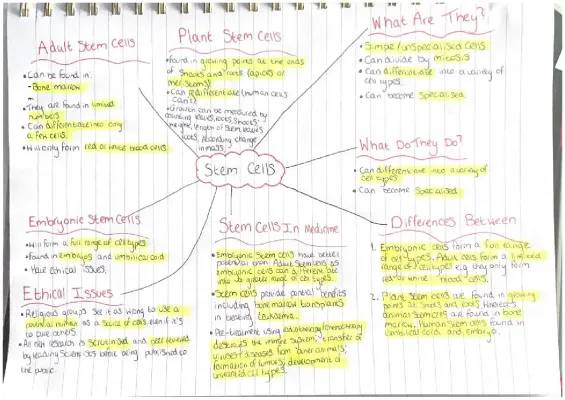 Adult Stem Cells
• Can be found in:
- Bone marrow
• They are found in limited
numbers
• Can differentiate into only
a few cells.
• Will only form red or white blood cells.
Plant Stem Cells
• Found in growing points at the ends
of shoots and roots (apices or
meristems)
• Can redifferentiate (human cells
can't)
• Growth can be measured by
counting leaves, roots, shoots,
height, length of stem, leaves
roots, recording change
in mass.
What Are They?
• Simple/unspecialised cells
• Can divide by mitosis
• Can differentiate into a variety of
cell types.
• Can become specialised.
Stem Cells
What Do They Do?
• Can differentiate into a variety of
cell types.
• Can become specialised.
Embryonic Stem Cells
• Will form a full range of cell types.
• Found in embryos and umbilical cord.
• Have ethical issues.
Ethical Issues
• Religious groups see it as wrong to use a
potential human as a source of cells even if it's
to cure others.
• All new research is scrutinised and peer reviewed
by leading scientists before being published to
the public.
Stem Cells In Medicine
• Embryonic Stem cells have better
potential than Adult Stem cells as
embryonic cells can differentiate
into a greater range of cell types.
• Stem cells provide potential benefits
including bone marrow transplants
in treating leukaemia.
• Pre-treatment using radiotherapy/chemotherapy
destroys the immune system; transfer of
viruses/diseases from other animals;
formation of tumours; development of
unwanted cell types.
Differences Between
1. Embryonic cells form a full range
of cell types. Adult cells form a limited
range of cell types e.g they only form
red or white blood cells.
2. Plant stem cells are found in growing
points at shoots and roots. Whereas
animal stem cells are found in bone
marrow. Human stem cells found in
umbilical cord and embryo.